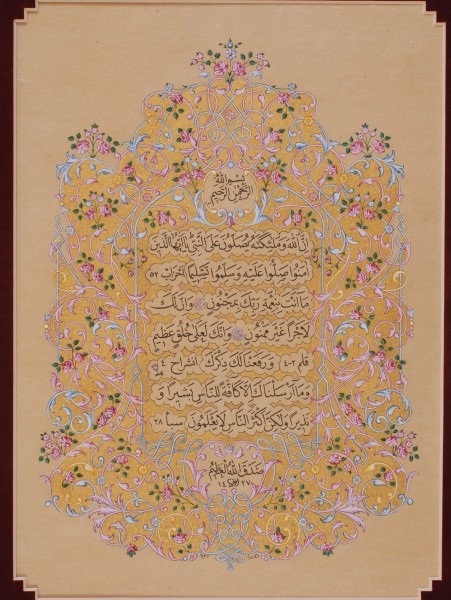 بسم الله
الرحمن الرحيم
ان الله وملئكته يصلون على النبى يا ايها الذين
امنوا صلوا عليه وسلموا تسليما احزاب ٥٦
ما انت بنعمة ربك بمجنون وان لك
لاجرا غير ممنون وانك لعلى خلق عظيم
قلم ٢-٤ ورفعنا لك ذكرك انشراح ٤
وما ارسلناك الا كافة للناس بشيرا و
نذيرا ولكن اكثر الناس لا يعلمون سبأ ٢٨
صدق الله العظيم